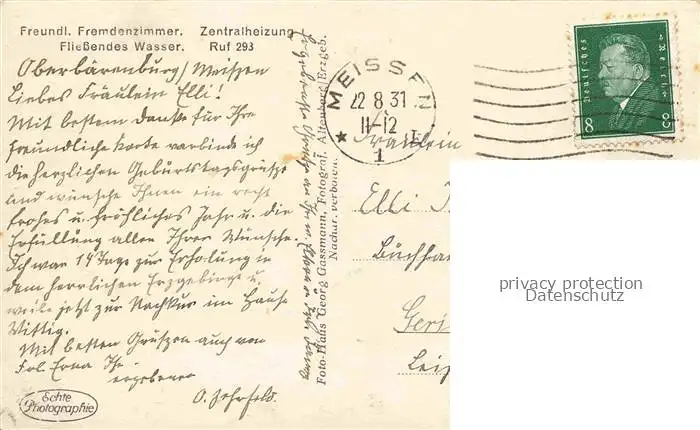 Freundl. Fremdenzimmer. Zentralheizung
Fließendes Wasser. Ruf 293
Oberbärenburg/Meißen
Liebes Fräulein Elli!
Mit bestem Danke für Ihre
freundliche Karte verbinde ich
die herzlichen Geburtstagsgrüße
und wünsche Ihnen ein recht
frohes u. fröhliches Jahr u. die
Erfüllung allen Ihrer Wünsche.
Ich war 14 Tage zur Erholung in
dem herrlichen Erzgebirge u.
weile jetzt zur Nachkur im Hause
Wittig.
Mit besten Grüßen auch von
Frl. Erna Ihr
ergebener
O.
Echte
Photographie
Foto-Hans Georg Gassmann, Fotograf, Altenberg/Erzgeb.
Nachdr. verboten.
MEISSEN
22.8.31
11-12
1
Deutsches Reich
8 8
Fräulein
Elli
Leip
privacy protection
Datenschutz